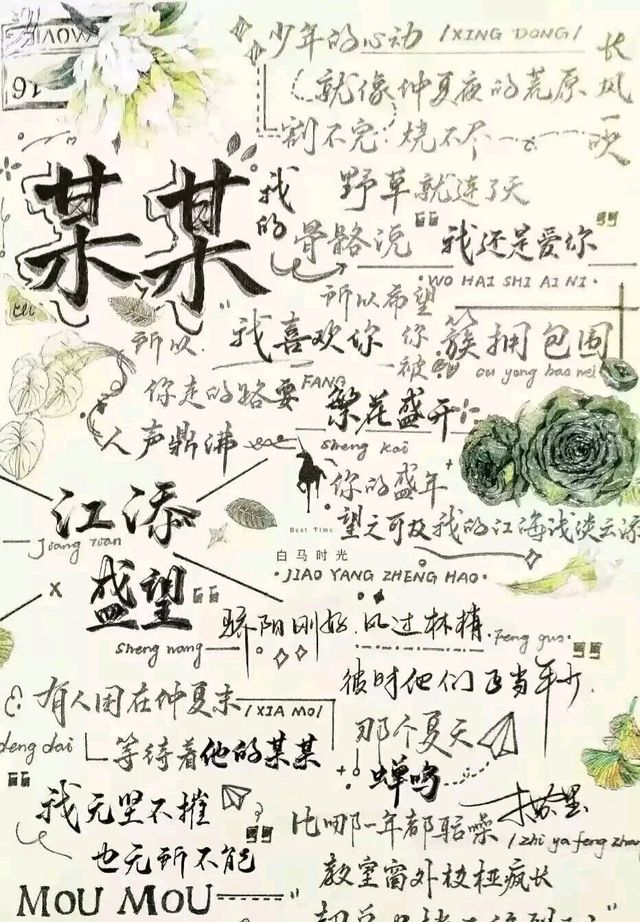 MEOW
16
少年的心动 /XING DONG/
就像仲夏夜的荒原
割不完 烧不尽
长风一吹
野草就连了天
某某
我的
骨骼说 "我还是爱你"
·WO HAI SHI AI NI·
所以希望
所以 "我喜欢你
你被簇拥包围
cu yong bao wei
你走的路要
FANG
繁花盛开
sheng kai
人声鼎沸
江添
Jiang
你的盛年
望之可及我的江海浅淡云深
Best Time
白马时光
·JIAO YANG ZHENG HAO·
x
盛望
sheng wang
骄阳刚好,风过林梢.
Feng guo
彼时他们正当年少.
有人困在仲夏末
/XIA MO/
deng dai
等待着他的某某
那个夏天
蝉鸣
"我无坚不摧
也无所不能"
比哪一年都聒噪
木苏里
/zhi ya feng zhang
教室窗外枝桠疯长
MOU MOU